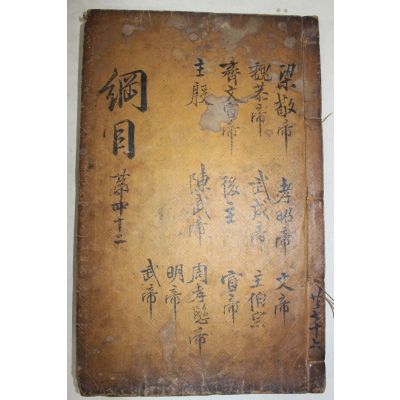 梁敬帝 孝昭帝 文帝
魏恭帝 武成帝 主伯宗
齊文宣帝 後主 宣帝
主殷 陳武帝 周孝愍帝
明帝
武帝
綱目
第四十二